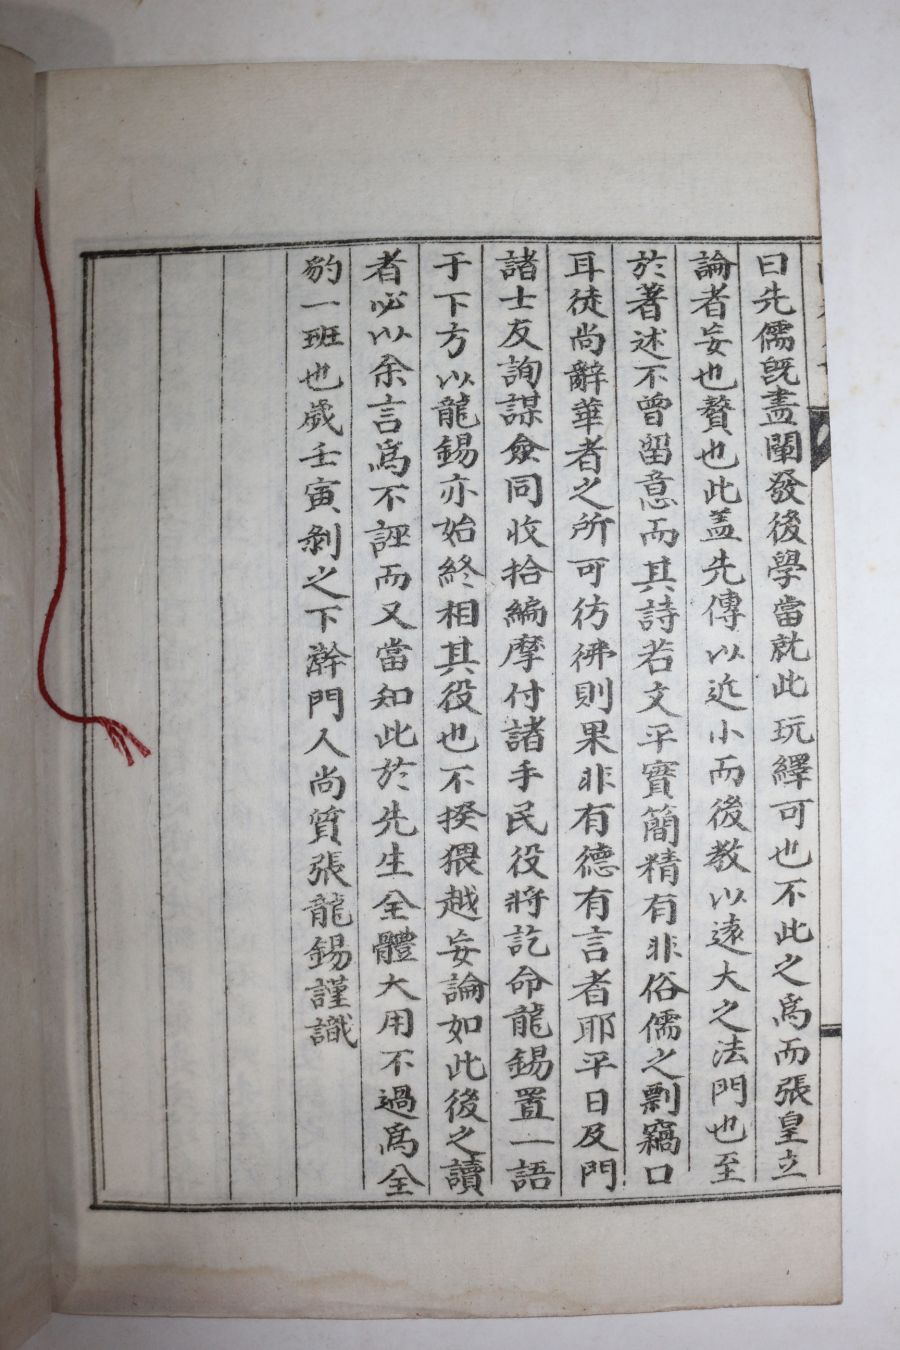 曰先儒旣盡闡發後學當就此玩繹可也不此之爲而張皇立
論者妄也贅也此盖先傳以近小而後敎以遠大之法門也至
於著述不曾留意而其詩若文平實簡精有非俗儒之剽竊口
耳徒尙辭華者之所可彷彿則果非有德有言者耶平日及門
諸士友詢謀僉同收拾編摩付諸手民役將訖命龍錫置一語
于下方以龍錫亦始終相其役也不揆猥越妄論如此後之讀
者必以余言爲不誣而又當知此於先生全體大用不過爲全
豹一班也歲壬寅剝之下澣門人尙質張龍錫謹識